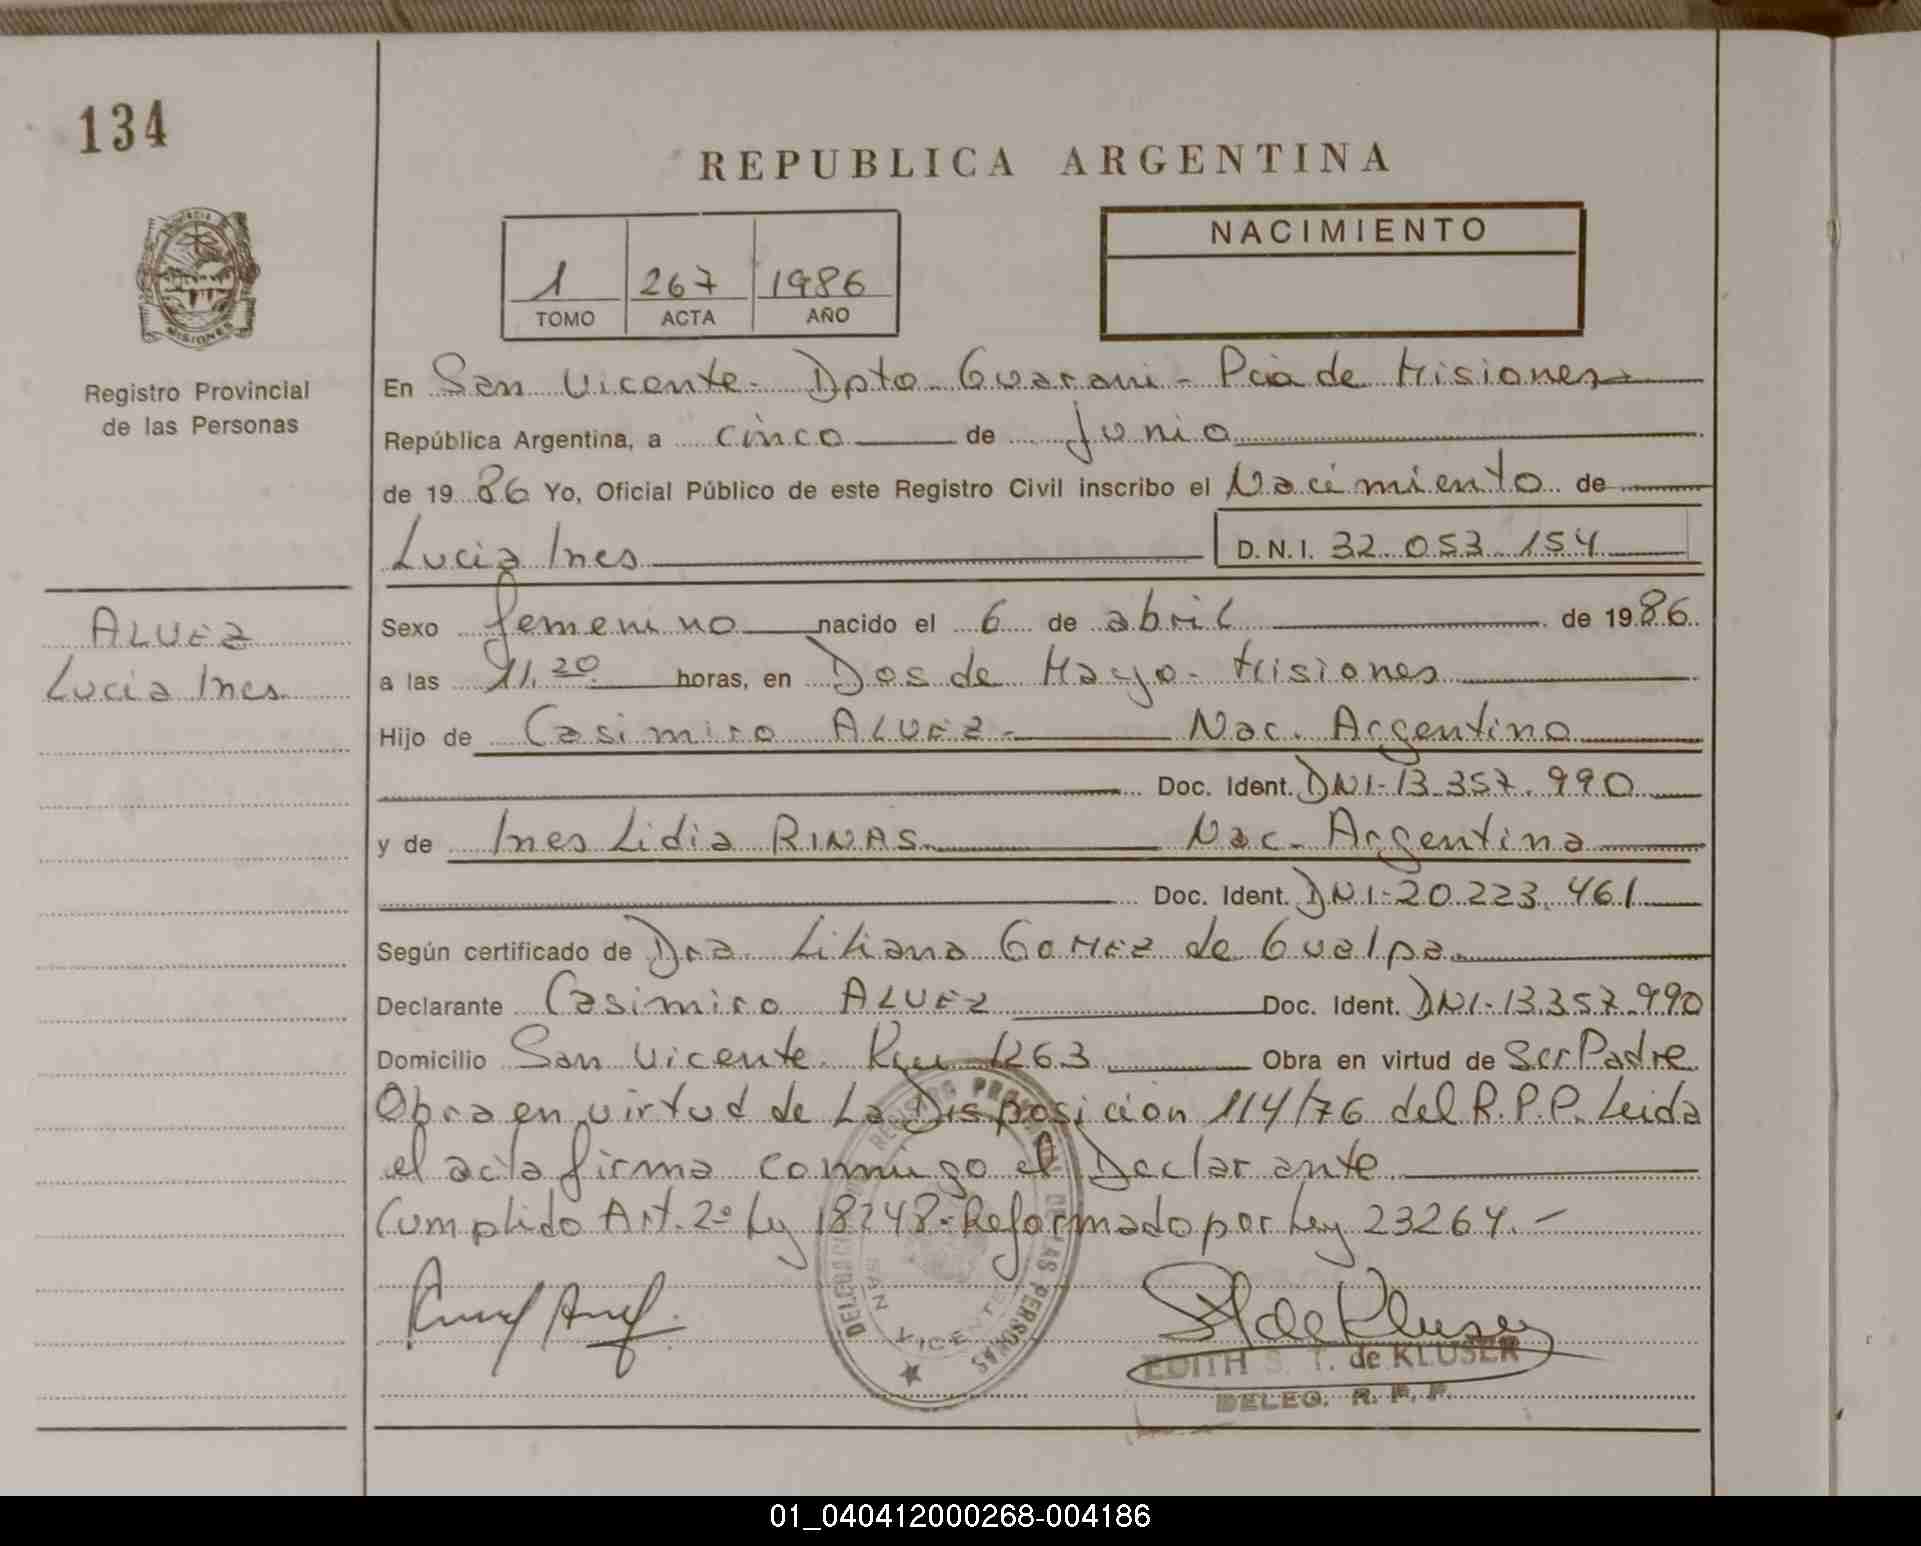 134
REPUBLICA ARGENTINA
PROVINCIA DE
MISIONES
Registro Provincial
de las Personas
1 267 1986
TOMO ACTA AÑO
NACIMIENTO
En San Vicente - Dpto Guarani - Pcia de Misiones
República Argentina, a cinco de Junio
de 1986 Yo, Oficial Público de este Registro Civil inscribo el Nacimiento de
Lucia Ines D.N.I. 32.053.154
ALVEZ
Lucia Ines
Sexo femenino nacido el 6 de abril de 1986
a las 11.20 horas, en Dos de Mayo - Misiones
Hijo de Casimiro ALVEZ - Nac. Argentino
Doc. Ident. DNI-13.357.990
y de Ines Lidia RINAS Nac. Argentina
Doc. Ident. DNI-20.223.461
Según certificado de Dra. Liliana GOMEZ de Gualpa
Declarante Casimiro ALVEZ Doc. Ident. DNI-13.357.990
Domicilio San Vicente Km 1263 Obra en virtud de Ser Padre
Obra en virtud de La Disposicion 114/76 del R.P.P. Leida
el acta firma conmigo el Declarante
Cumplido Art. 2º Ley 18248 - Reformado por Ley 23264. -
DELEGACION REGISTRO PROVINCIAL DE LAS PERSONAS
SAN VICENTE
EDITH S. T. de KLUSER
DELEG. R. P. P.
01_040412000268-004186